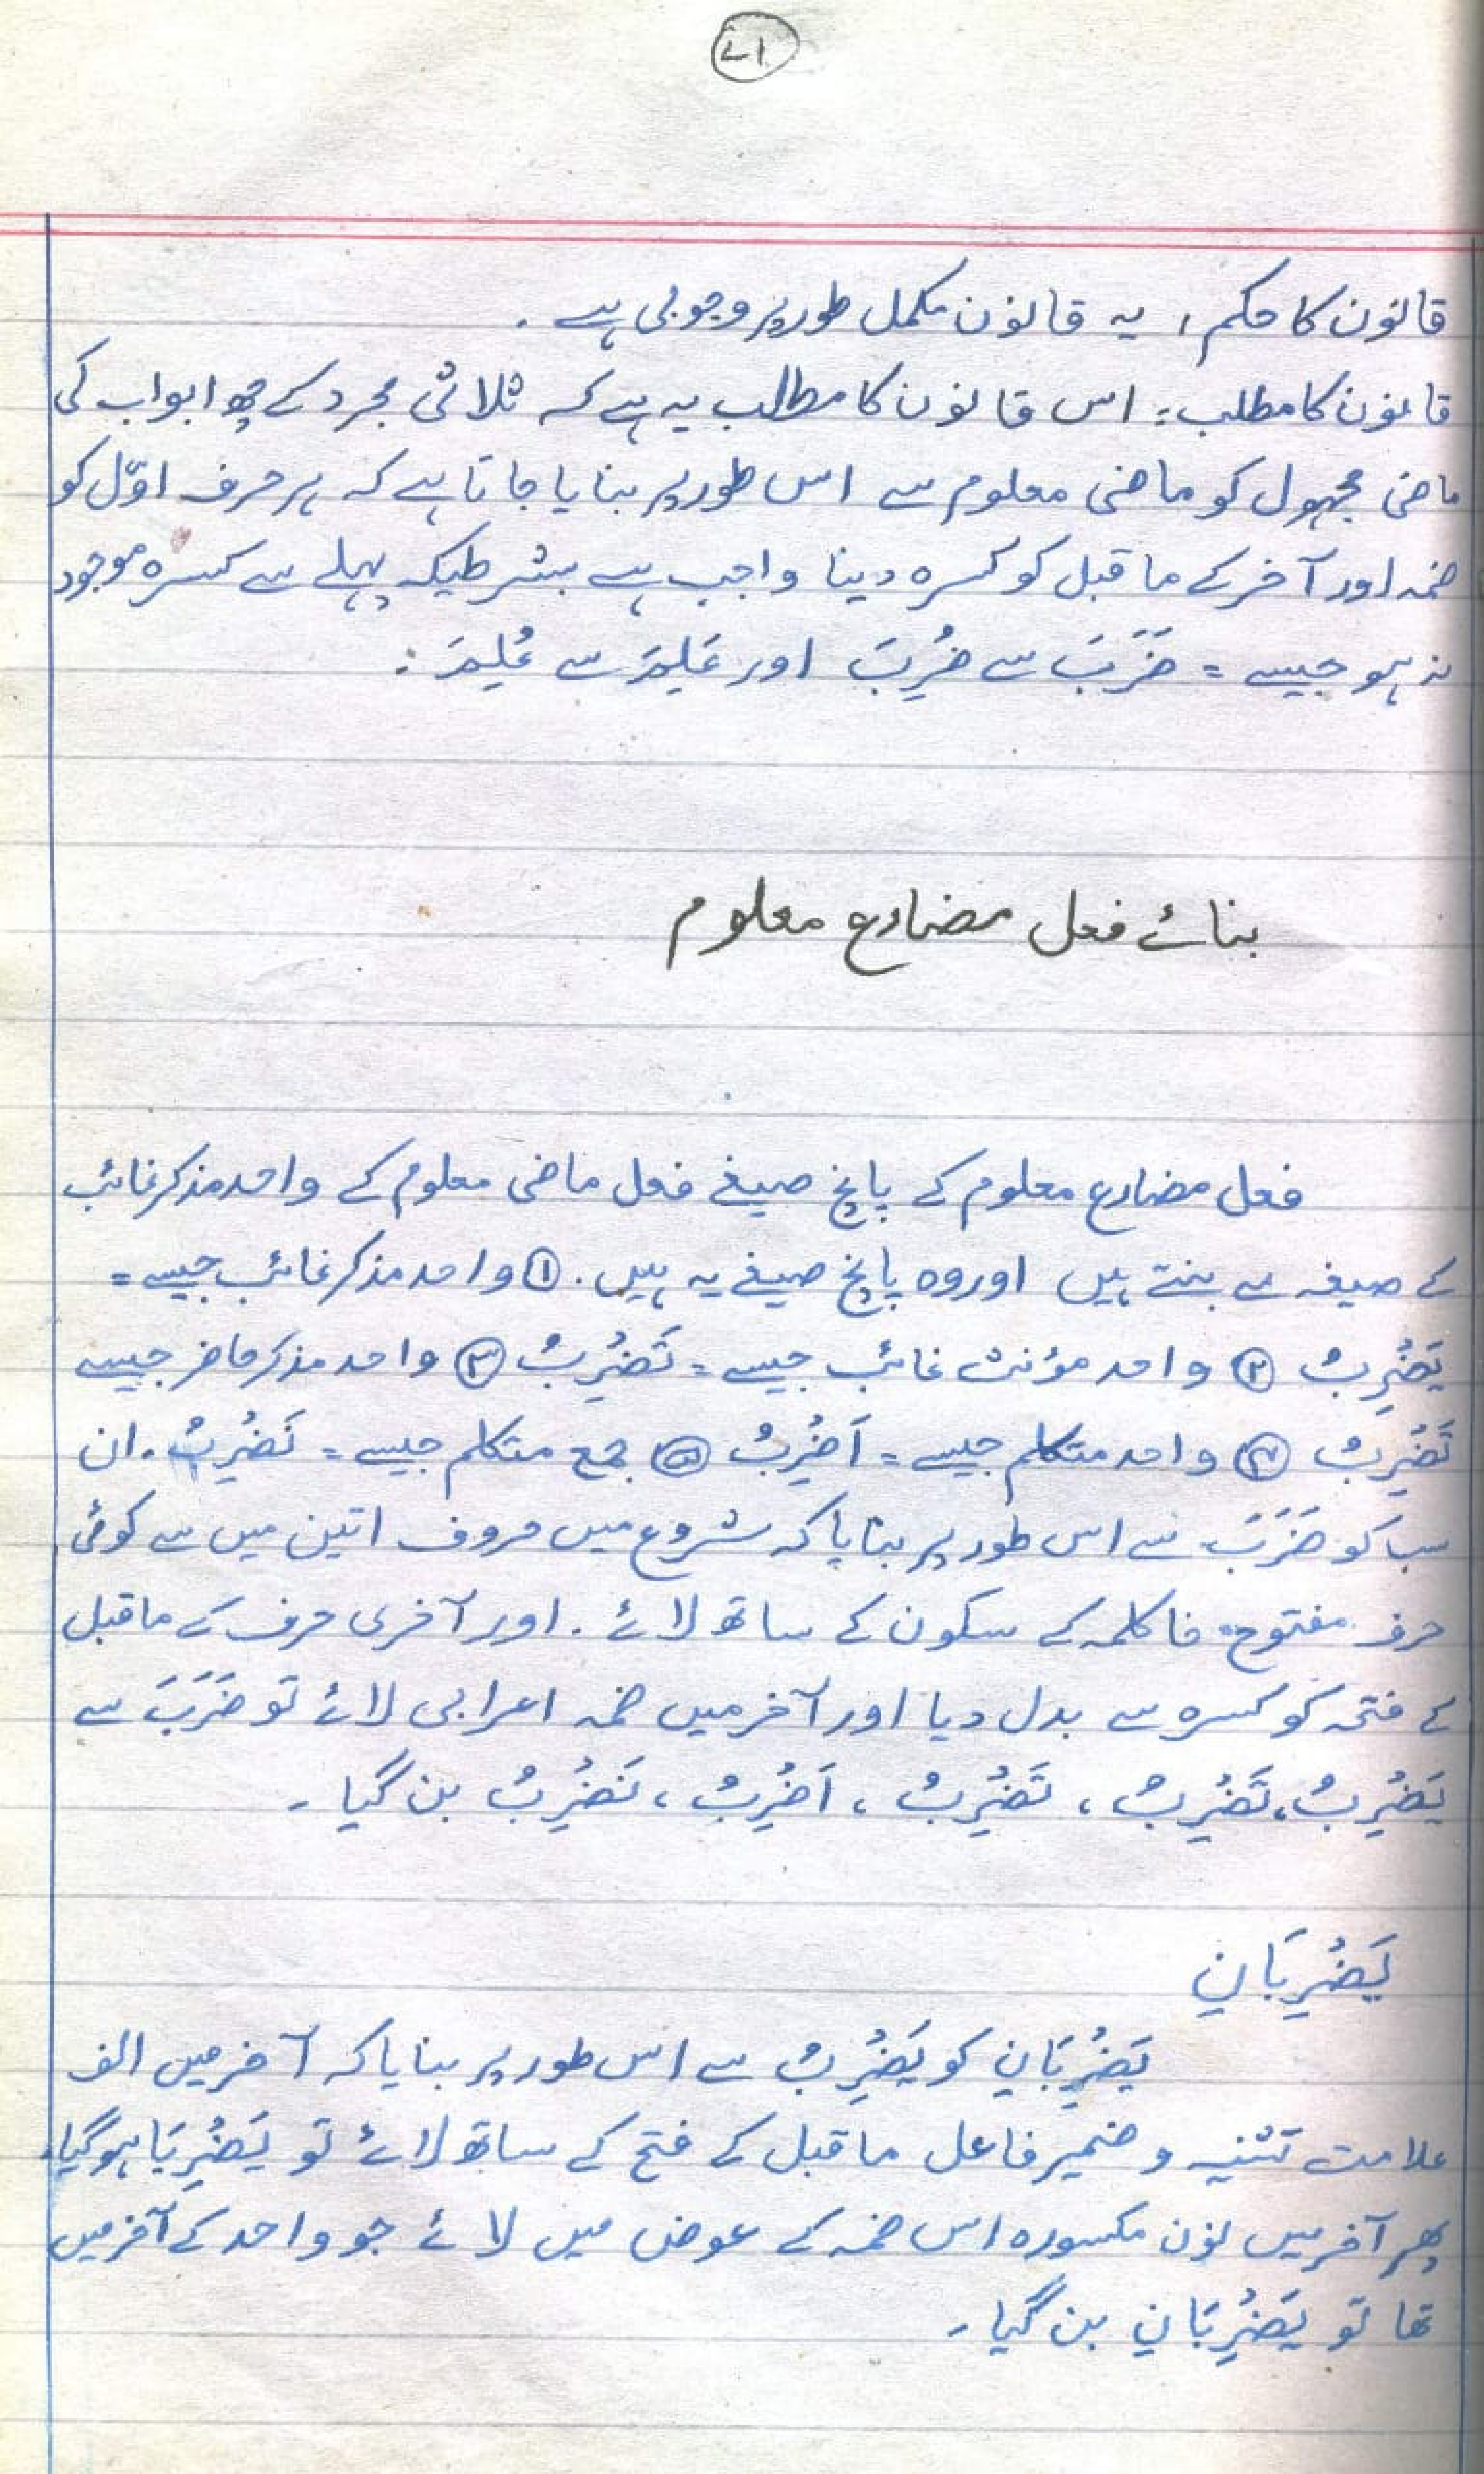 ۷۱
قانون کا حکم، یہ قانون مکمل طور پر وجوبی ہے۔
قانون کا مطلب: اس قانون کا مطالب یہ ہے کہ ثلاثی مجرد کے چھ ابواب کی
ماضی مجہول کو ماضی معلوم سے اس طور پر بنایا جاتا ہے کہ ہر حرف اوّل کو
ضمہ اور آخر کے ماقبل کو کسرہ دینا واجب ہے بشرطیکہ پہلے سے کسرہ موجود
نہ ہو جیسے = ضَرَبَ سے ضُرِبَ اور عَلِمَ سے عُلِمَ :
بنائے فعل مضارع معلوم
فعل مضارع معلوم کے پانچ صیغے فعل ماضی معلوم کے واحد مذکر غائب
کے صیغہ سے بنتے ہیں اور وہ پانچ صیغے یہ ہیں۔ ① واحد مذکر غائب جیسے =
یَضْرِبُ ② واحد مؤنث غائب جیسے = تَضْرِبُ ③ واحد مذکر حاضر جیسے
تَضْرِبُ ④ واحد متکلم جیسے = اَضْرِبُ ⑤ جمع متکلم جیسے = نَضْرِبُ۔ ان
سب کو ضَرَبَ سے اس طور پر بنایا کہ شروع میں حروف اتین میں سے کوئی
حرف مفتوح، فا کلمہ کے سکون کے ساتھ لائے۔ اور آخری حرف کے ماقبل
کے فتحہ کو کسرہ سے بدل دیا اور آخر میں ضمہ اعرابی لائے تو ضَرَبَ سے
یَضْرِبُ، تَضْرِبُ، تَضْرِبُ، اَضْرِبُ، نَضْرِبُ بن گیا۔
یَضْرِبَانِ
یَضْرِبَانِ کو یَضْرِبُ سے اس طور پر بنایا کہ آخر میں الف
علامت تثنیہ و ضمیر فاعل ماقبل کے فتح کے ساتھ لائے تو یَضْرِبَا ہو گیا۔
پھر آخر میں نون مکسورہ اس ضمہ کے عوض میں لائے جو واحد کے آخر میں
تھا تو یَضْرِبَانِ بن گیا۔